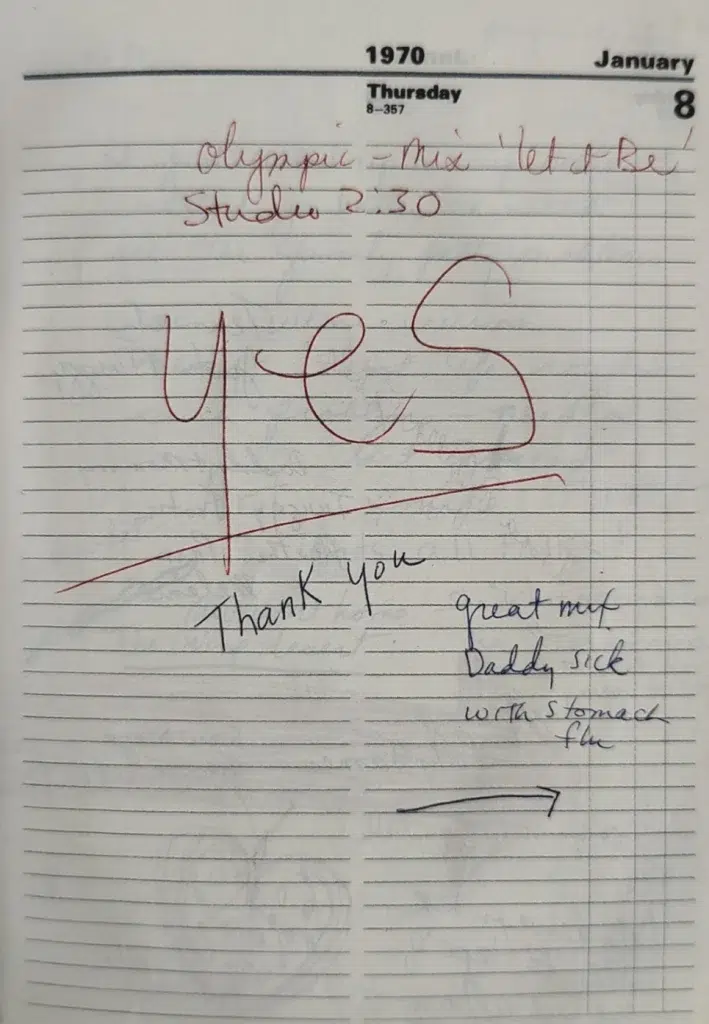 1970 January
Thursday 8
8–357
Olympic – Mix 'let it Be'
Studio 2:30
YES
Thank you
great mix
Daddy sick
with stomach
flu